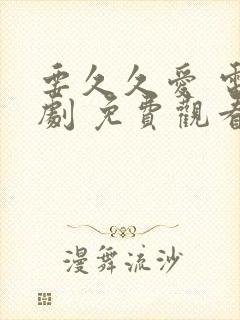 要久久愛 電
劇 免費觀看
漫舞流沙